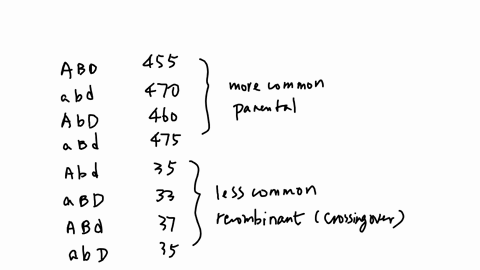 ABD 455
abd 470
AbD 460
aBd 475
more common
parental
Abd 35
aBD 33
ABd 37
abD 35
less common
recombinant (crossingover)